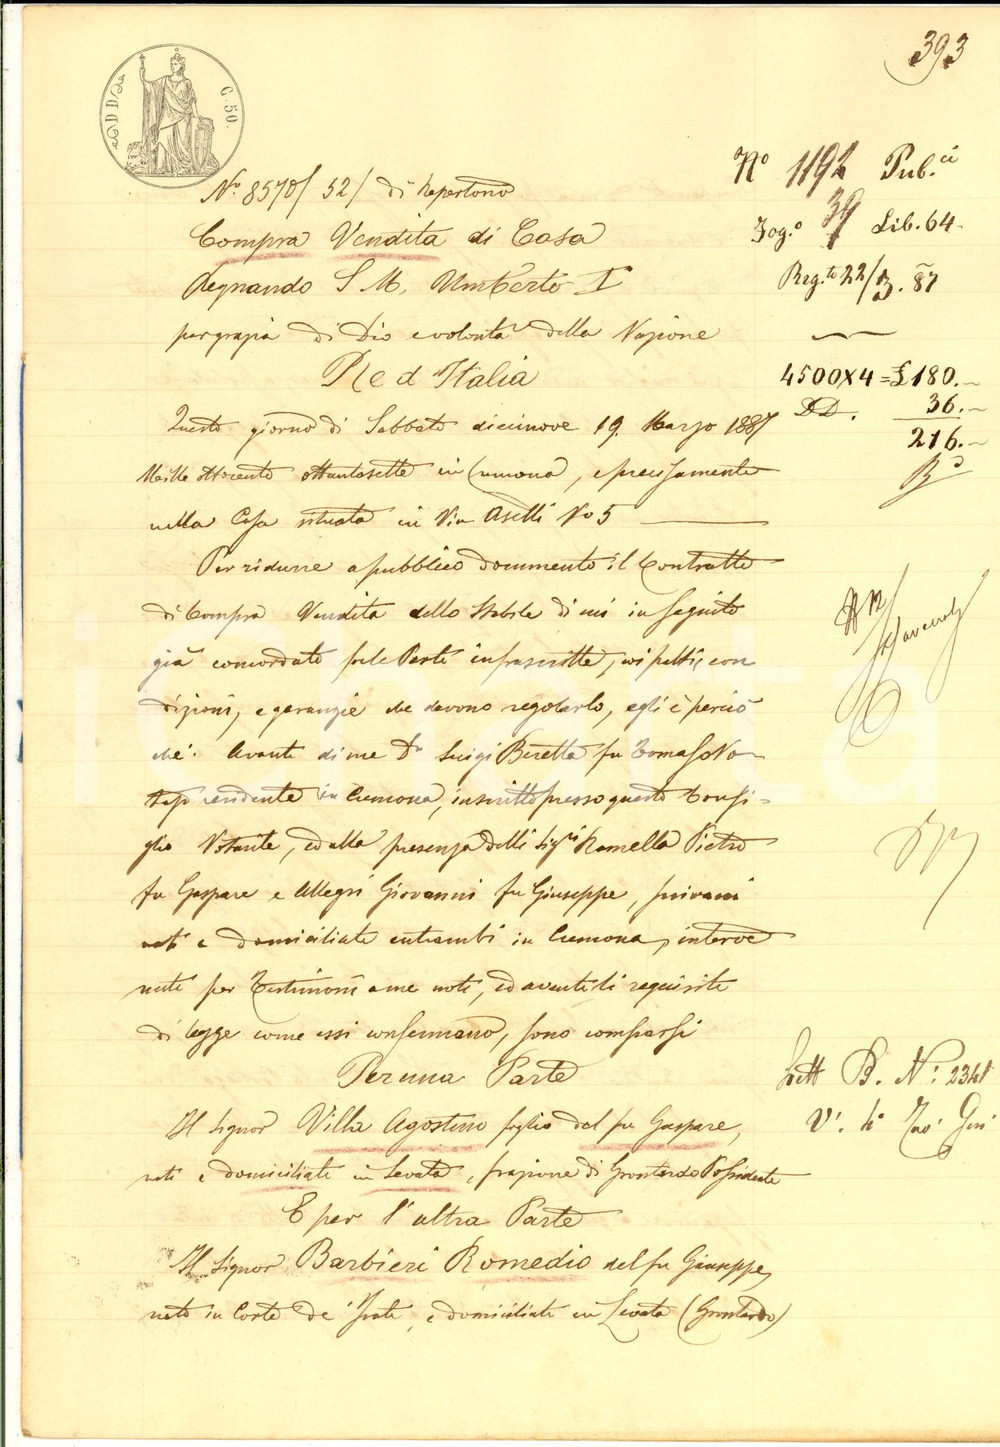 393
C. 50.
No. 8570/52/ di Repertorio
Compra Vendita di Casa
Regnando S. M. Umberto I°
per grazia di Dio e volontà della Nazione
Re d'Italia
Questo giorno di Sabbato diecinove 19. Marzo 1887
Mille ottocento ottantasette in Cremona, e precisamente
nella Casa situata in Via Aselli No 5
Per ridurre a pubblico documento il Contratto
di Compra Vendita dello Stabile di cui in seguito
già concordato fra le Parti infrascritte, coi patti, con
dizioni, e garanzie che devono regolarlo, egli è perciò
che: Avanti di me Dr. Luigi Beretta fu Tomaso No-
tajo residente in Cremona, inscritto presso questo Consi-
glio Notarile, ed alla presenza delli Sigri Ramella Pietro
fu Gaspare e Allegri Giovanni fu Giuseppe,
nati e domiciliati entrambi in Cremona, interve
nuti per Testimonj a me noti, ed aventi li requisiti
di legge come essi confermano, sono comparsi
Per una Parte
Il Signor Villa Agostino figlio del fu Gaspare,
nato e domiciliato in Levata, frazione di Grontardo Possidente
E per l'altra Parte
Il Signor Barbieri Romedio del fu Giuseppe,
nato in Corte de' Frati, e domiciliato in Levata (Grontardo)
No 1192 Pub.ci
Fog.o 39 Lib. 64.
Reg.to 22/3. 87
4500X4 = £180.-
DD. 36.-
216.-
Lett B. No: 2341